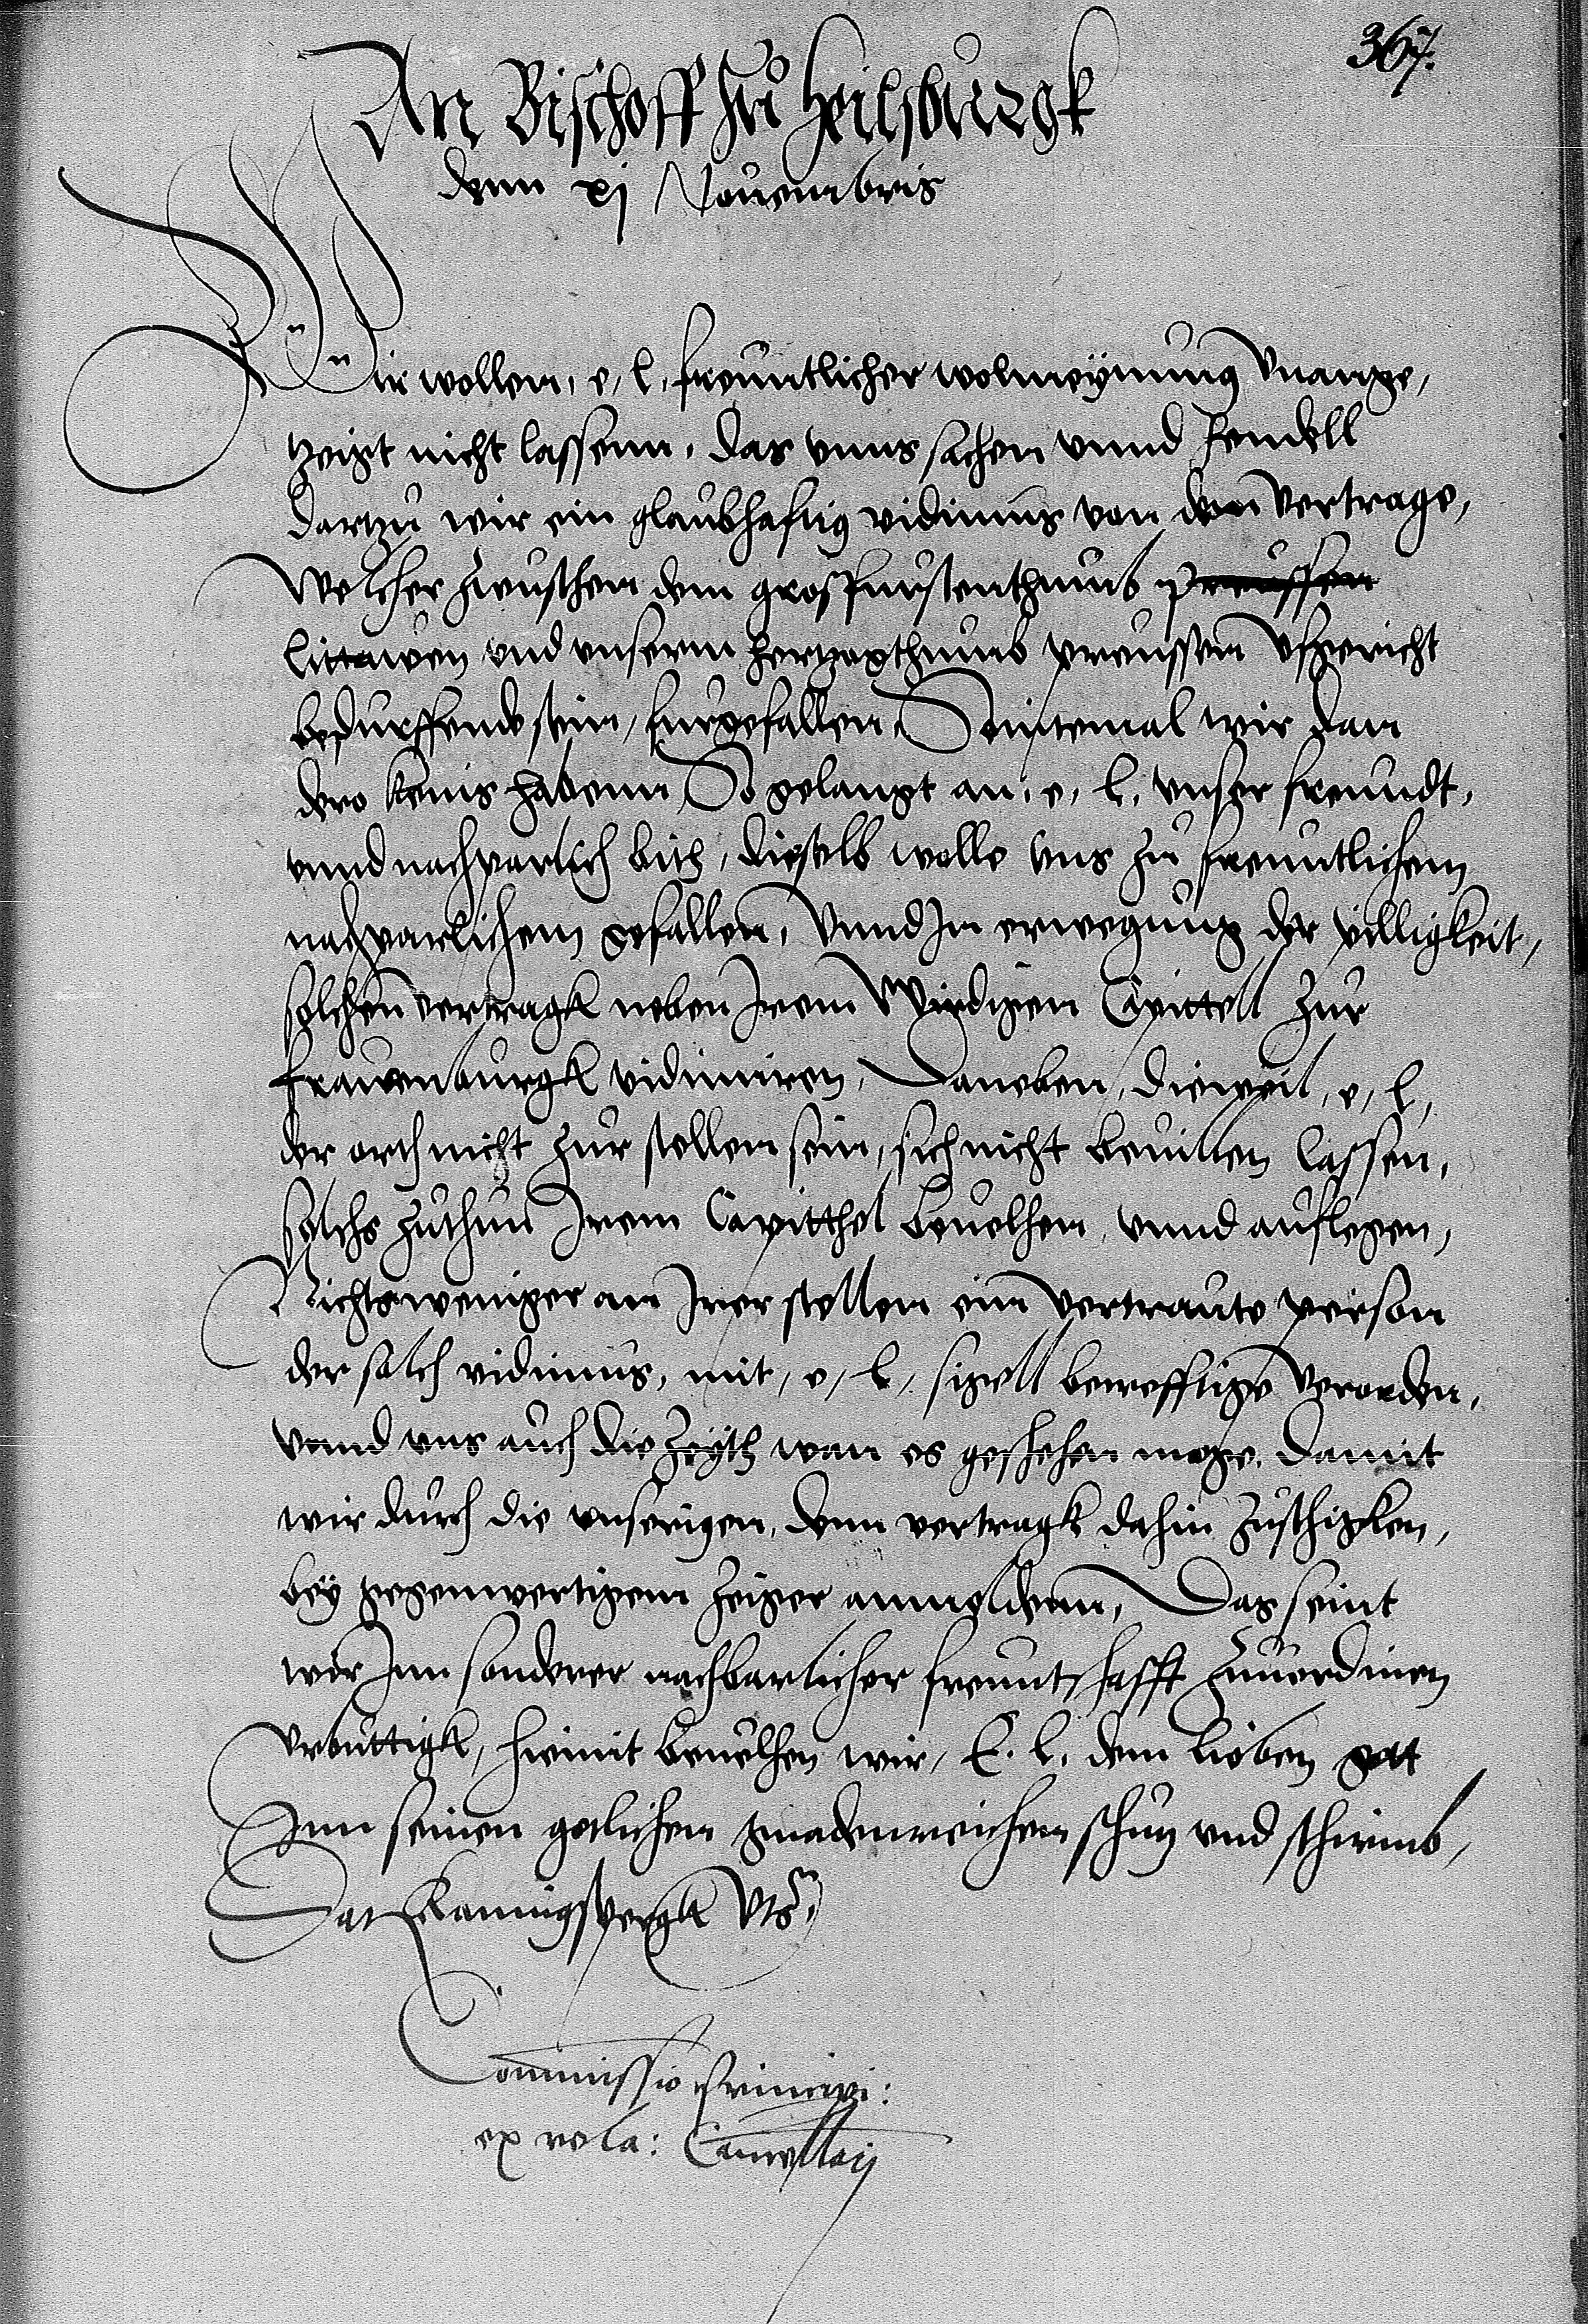 367.
An Bischoff zu Heilsburgk
denn xj Nouembris
Wir wollen, e, l, freuntlicher wolmeynung vnange,
tzeigt nicht lassenn, das vnns sachen vnnd hendell
dartzu wir ein glaubhafftig vidimus von dem vertrage,
Welcher zwuschen dem grosfurstenthumb preussen
littawen vnd vnserm hertzogthumb preussen vfgericht
bedurffende sein, furgefallen, Seintemal wir dan
dero keins habenn, So gelangt an, e, l, vnser freundt,
vnnd nachparlich bith, dieselb wolle vns zu freuntlichem
nachparlichem gefallen, Vnnd In erwegung der pilligkeit,
solchen vertragk neben Irem Wirdigen Capittell zur
frauenburgk vidimiren, Daneben, dieweil, e, l,
der orth nicht zur stellen sein, sich nicht beuilen lassen,
solchs zuthun Irem Capitthel beuelhen, vnnd auflegen,
Nichts weniger an Irer stellen ein vertraute person
der solch vidimus, mit, e, l, sigell bereffstige verorden,
vnnd vns auch die zeyth wan es geschehen moge, damit
wir durch die vnserigen, denn vertragk dahin zuschigken,
bey gegenwertigem zeiger anmeldenn, Das seint
wir Inn sonderer nachbarlicher freuntschafft zuuerdinen
vrbuttigk, hiemit beuelhen wir, E. l. dem lieben gott
Inn seinen gotlichen gnadenreichen schutz vnd schirmb,
Dat Konnigspergk vts
Commissio principi:
ex rela: Cancellarij